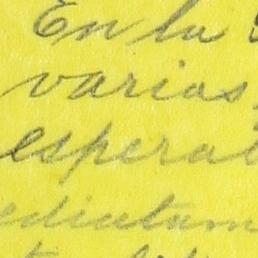 En la
varias
espera
ediatam